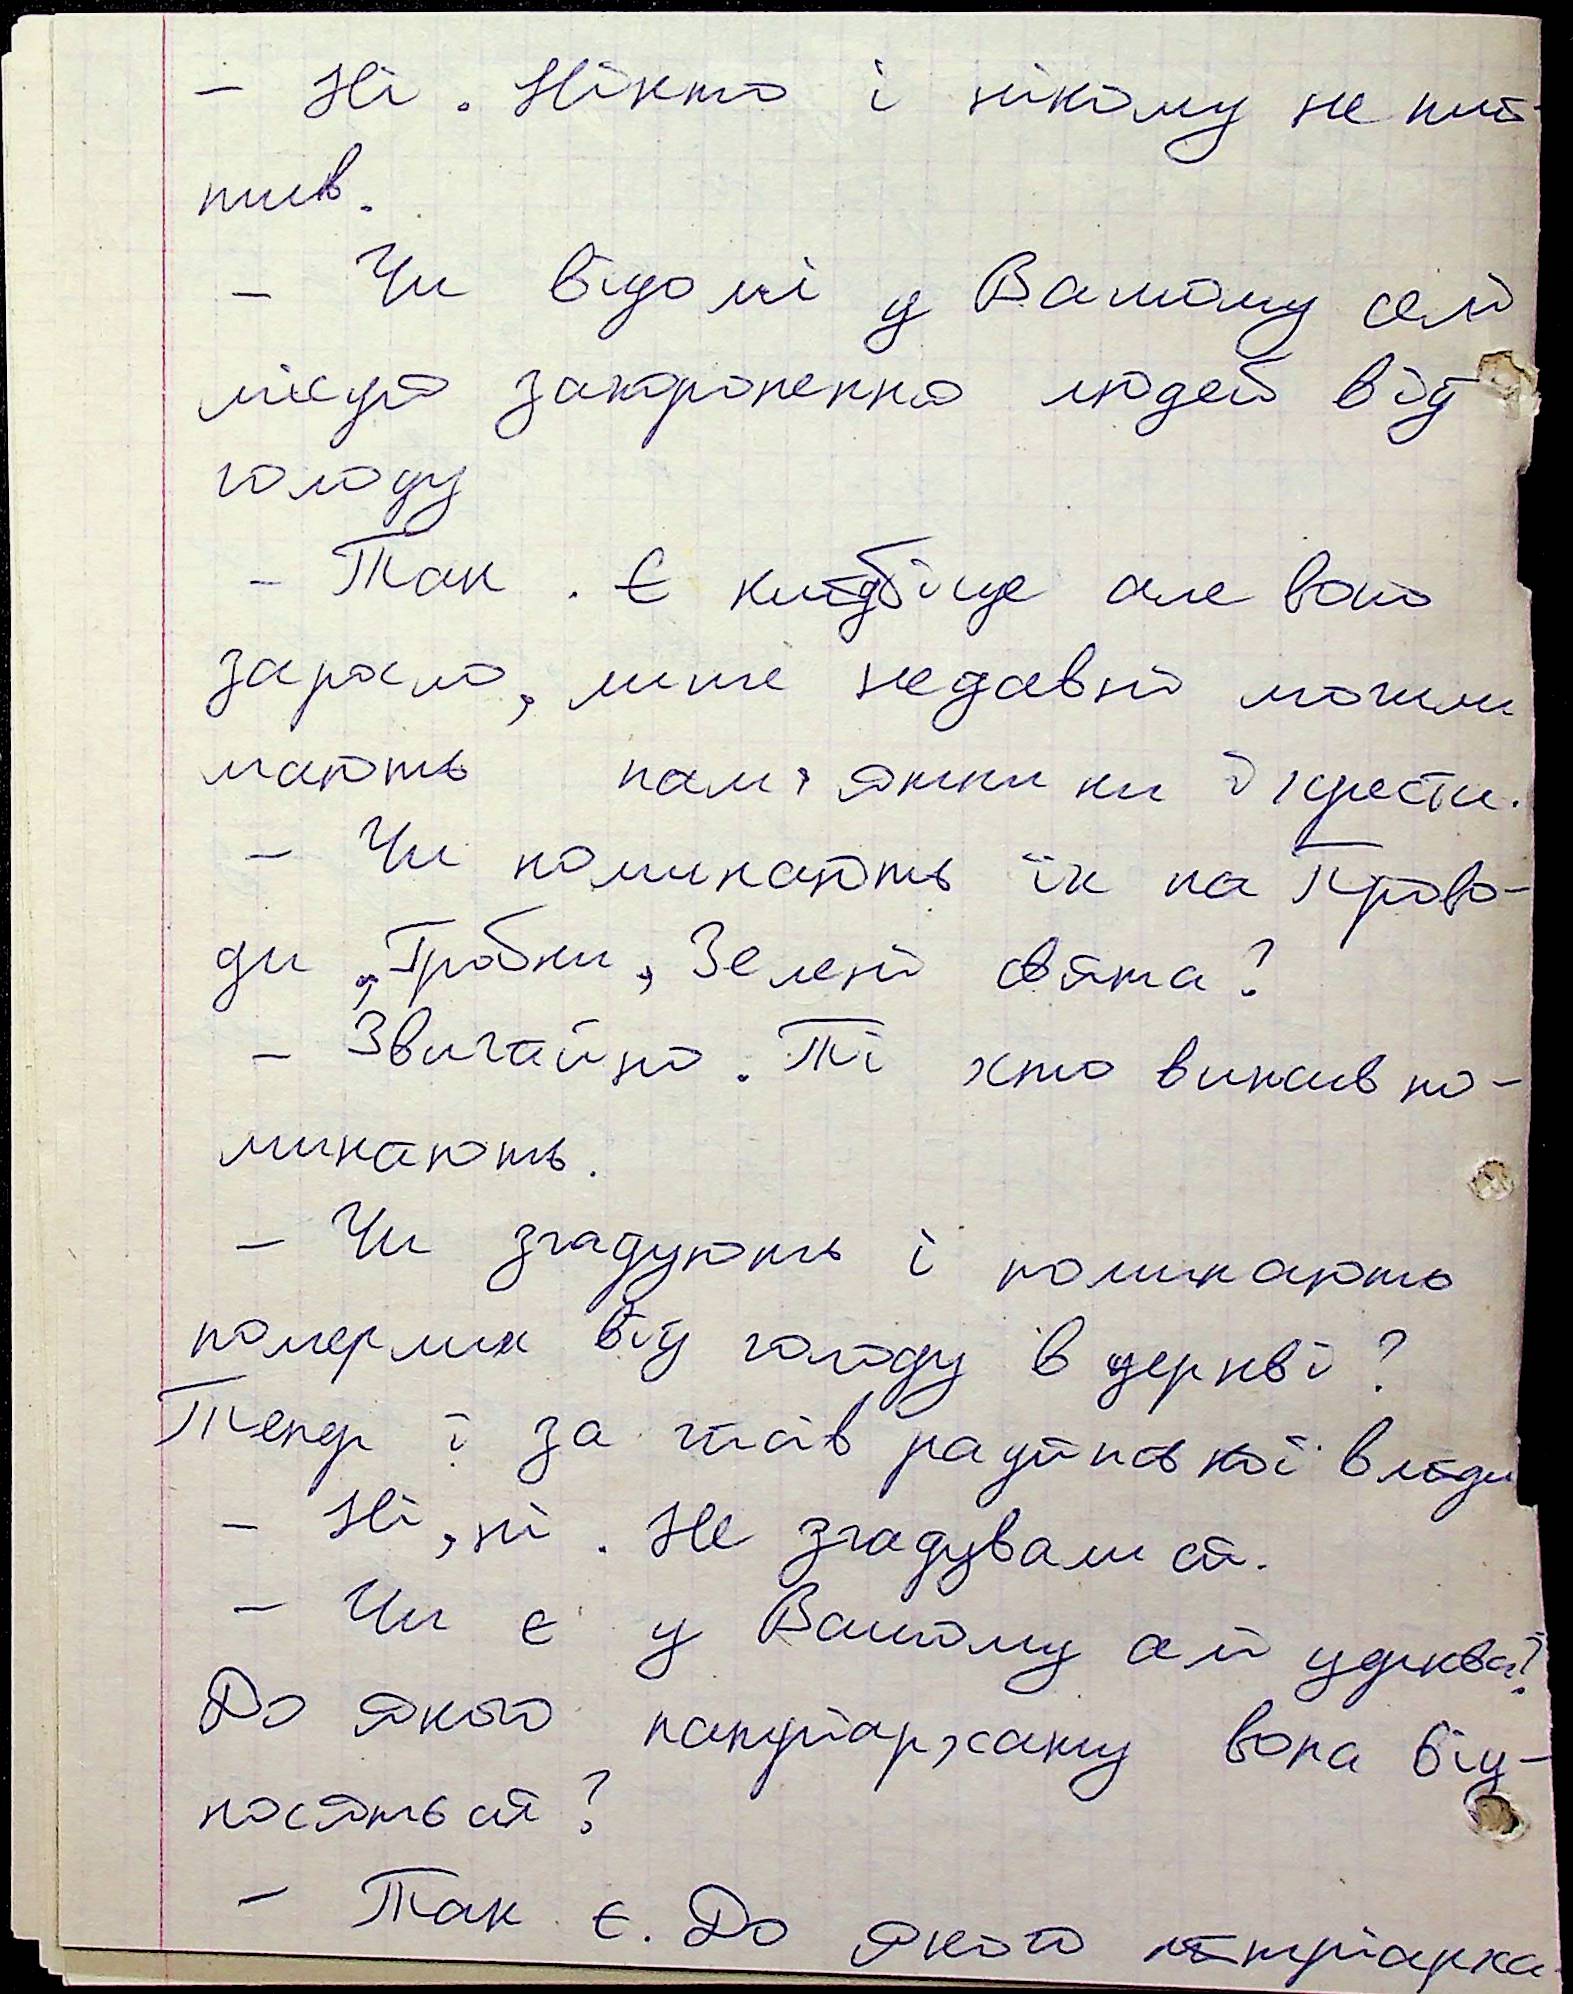 - Ні. Ніхто і нікому не пла-
тив.
- Чи відомі у Вашому селі
місця захоронення людей від
голоду
- Так. Є кладбіще але воно
заросло, лише недавні могили
мають пам'ятники і хрести.
- Чи поминають їх на Прово-
ди, Гробки, Зелені свята?
- Звичайно. Ті хто вижив по-
минають.
- Чи згадують і поминають
померлих від голоду в церкві?
Тепер і за часів радянської влади
- Ні, ні. Не згадувалися.
- Чи є у Вашому селі церква?
До якого патріархату вона від-
носяться?
- Так є. До якого патріарха-